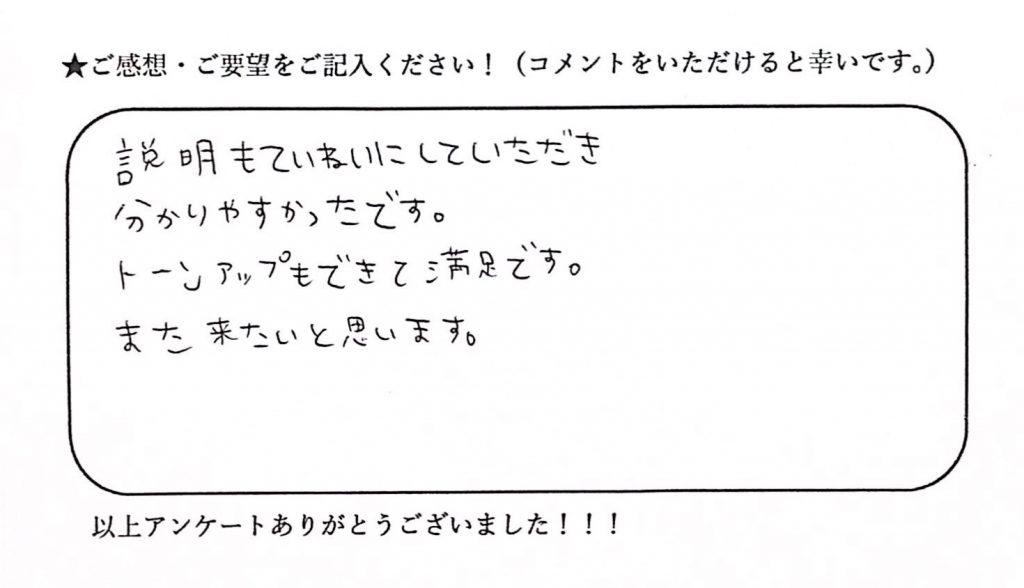 ★ご感想・ご要望をご記入ください！（コメントをいただけると幸いです。）
説明もていねいにしていただき
分かりやすかったです。
トーンアップもできて満足です。
また来たいと思います。
以上アンケートありがとうございました！！！